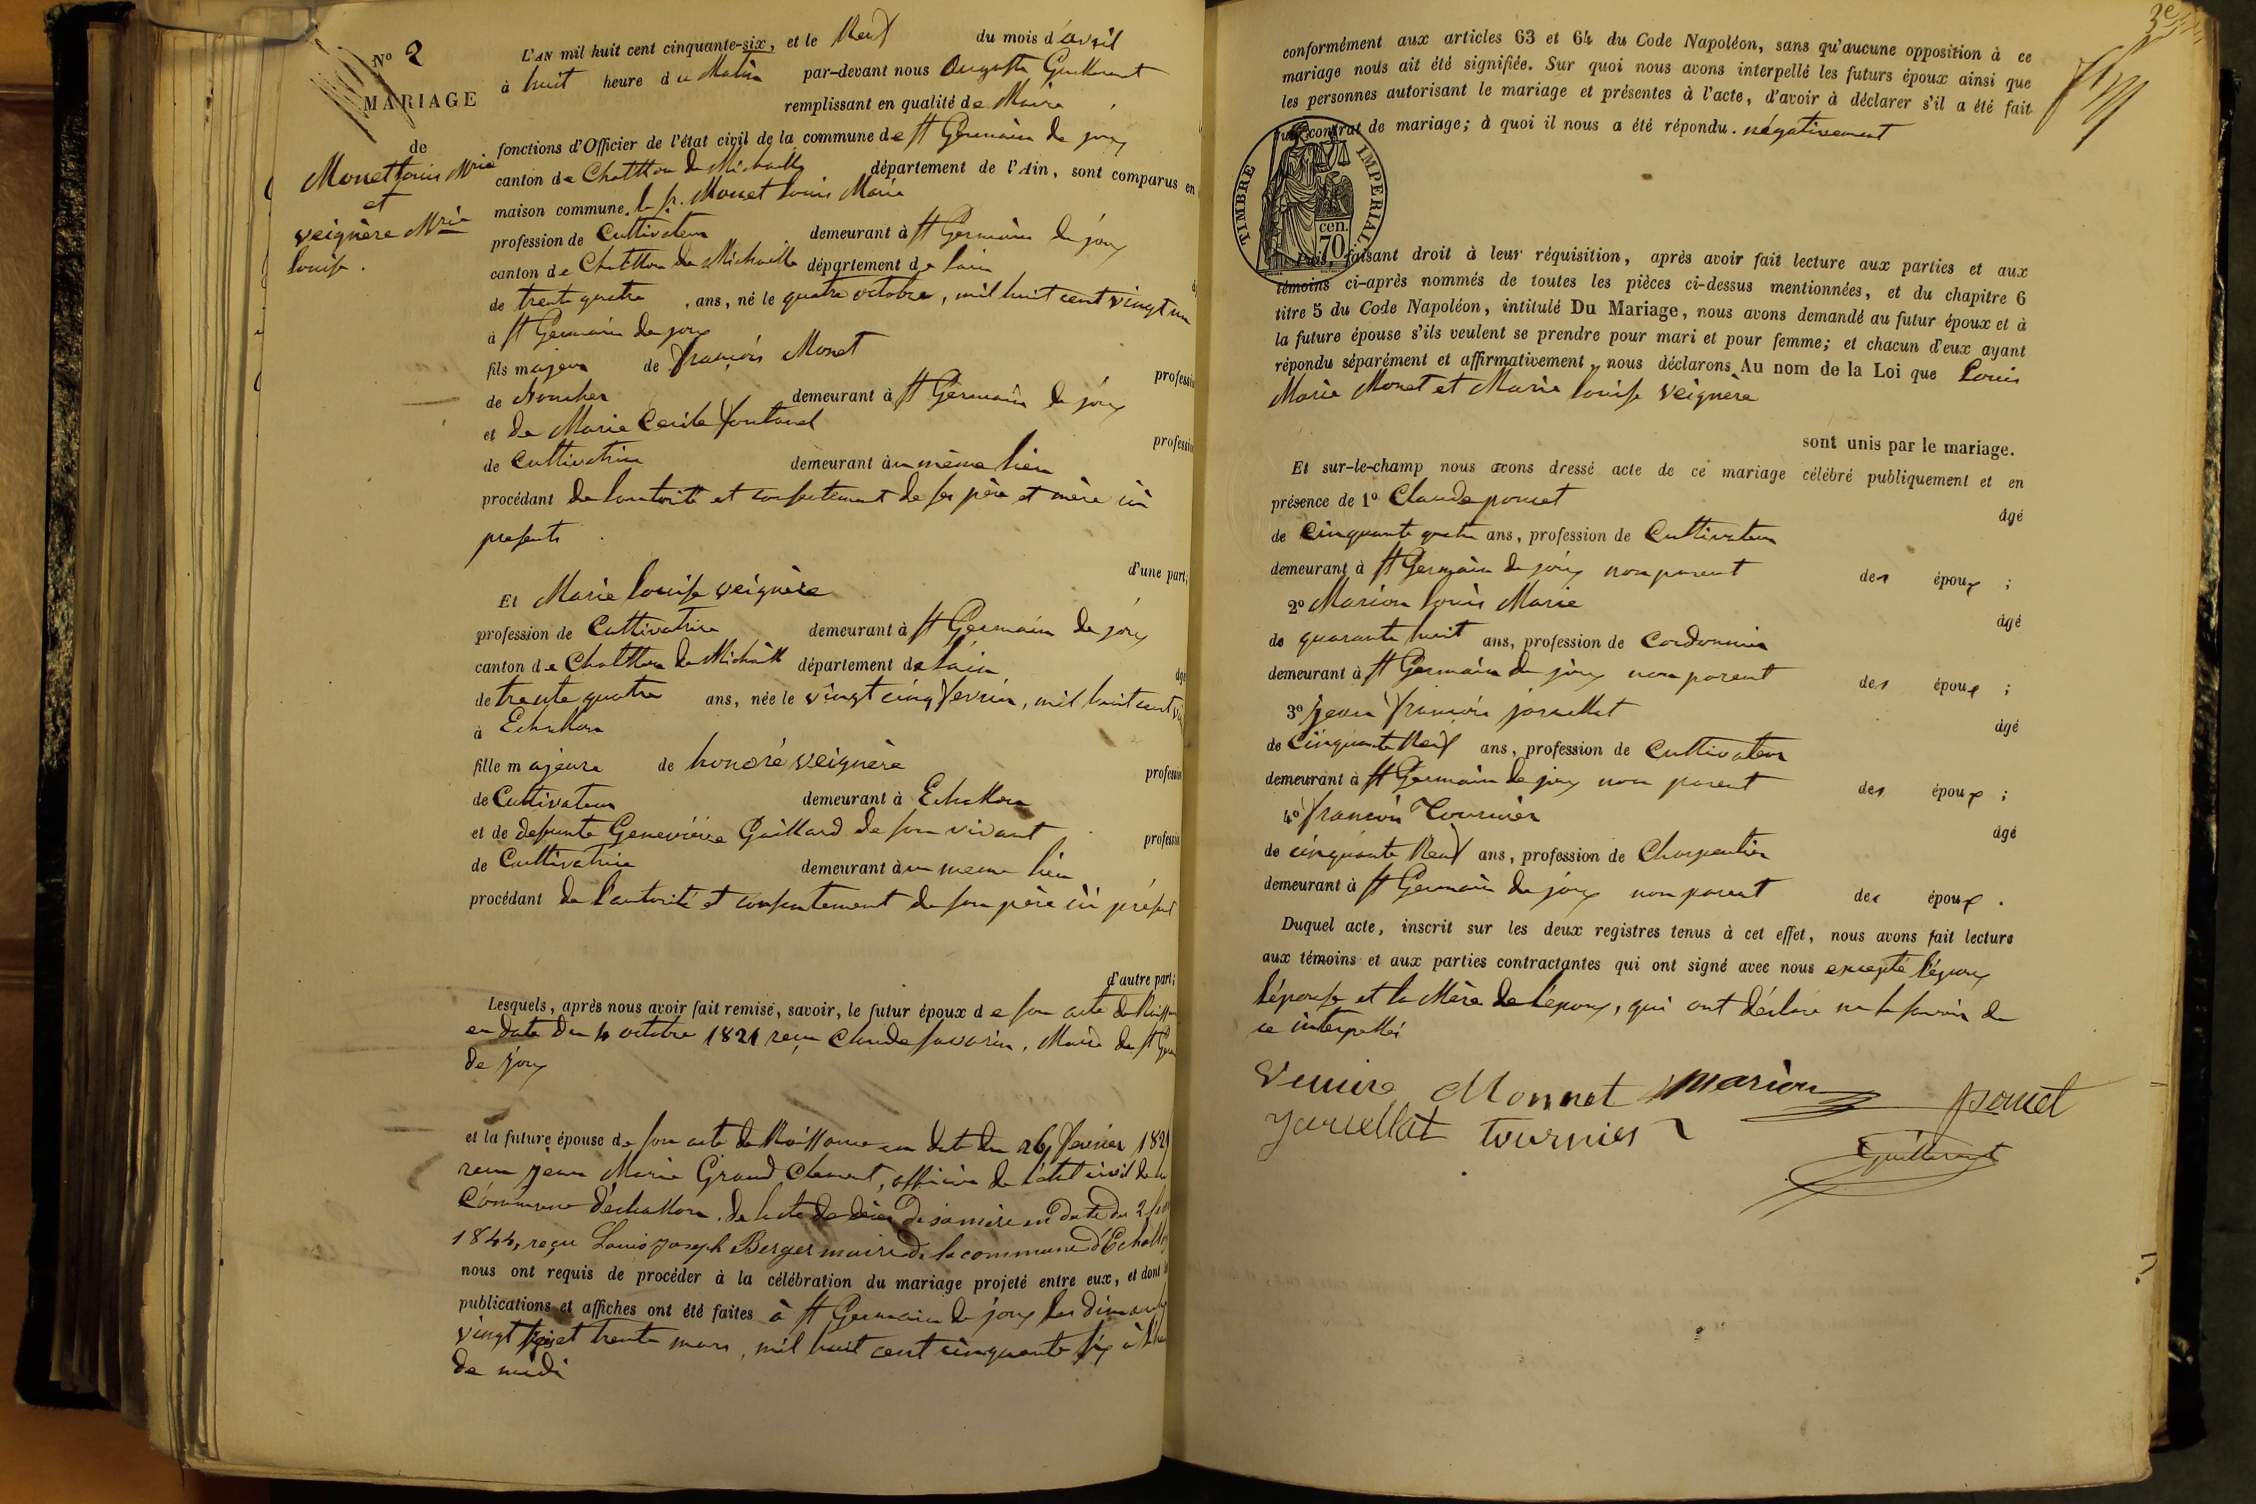 No 2
MARIAGE
de
Monet Louis Mrie
et
Veignère Mrie
louise.
L'AN mil huit cent cinquante-six, et le Neuf du mois d'avril
à huit heure du Matin par-devant nous Auguste Guillermet
remplissant en qualité de Maire
fonctions d'Officier de l'état civil de la commune de St Germain de joux
canton de Chatillon de Michaille département de l'Ain, sont comparus en
maison commune, le sr. Monet louis Marie
profession de Cultivateur demeurant à St Germain de joux
canton de Chatillon de Michaille département de lain
de trente quatre ans, né le quatre octobre, mil huit cent vingt un
à St Germain de joux
fils majeur de françois Monet
professi
de demeurant à St Germain de joux
et de Marie Cecile
professio
de Cultivatrice demeurant àu même lieu
procédant de lautorité et consentement de ses père et mère ici
presents
d'une part;
Et Marie louise veignère
profession de Cultivatrice demeurant à St Germain de joux
canton de Chatillon de Michaille département de lain
âgé
de trente quatre ans, née le vingt cinq fevrier, mil huit cent
à Echallon
fille majeure de honoré veignère
professio
de Cultivateur demeurant à Echallon
et de defunte Geneviève Gaillard de son vivant
professio
de Cultivatrice demeurant àu meme lieu
procédant de l'autorité et consentement de son père ici présent
d'autre part;
Lesquels, après nous avoir fait remise, savoir, le futur époux de son acte de Naissance
en date du 4 octobre 1821 reçu Claude savarin, Maire de St
de joux
et la future épouse de son acte de Naissance en date du 26 fevrier
reçu jean Marie Grand Clement, officier de létat civil de la
Commune déchallon. de lacte de décès de sa mère en date du 2
1844, reçu Louis joseph Berger maire de la commune d'Echallon
nous ont requis de procéder à la célébration du mariage projeté entre eux, et dont
publications et affiches ont été faites à St Germain de joux les dimanches
vingt trois et trente mars, mil huit cent cinquante six à
de midi
conformément aux articles 63 et 64 du Code Napoléon, sans qu'aucune opposition à ce
mariage nous ait été signifiée. Sur quoi nous avons interpellé les futurs époux ainsi que
les personnes autorisant le mariage et présentes à l'acte, d'avoir à déclarer s'il a été fait
un contrat de mariage; à quoi il nous a été répondu. négativement
TIMBRE IMPERIAL
70 cen.
Puis, faisant droit à leur réquisition, après avoir fait lecture aux parties et aux
témoins ci-après nommés de toutes les pièces ci-dessus mentionnées, et du chapitre 6
titre 5 du Code Napoléon, intitulé Du Mariage, nous avons demandé au futur époux et à
la future épouse s'ils veulent se prendre pour mari et pour femme; et chacun d'eux ayant
répondu séparément et affirmativement, nous déclarons Au nom de la Loi que Louis
Marie Monet et Marie louise veignère
sont unis par le mariage.
Et sur-le-champ nous avons dressé acte de ce mariage célébré publiquement et en
présence de 1o Claude poncet
âgé
de Cinquante quatre ans, profession de Cultivateur
demeurant à St Germain de joux non parent des époux ;
2o Marion louis Marie
âgé
de quarante huit ans, profession de Cordonnier
demeurant à St Germain de joux non parent des époux ;
3o jean françois juillat
âgé
de Cinquante Neuf ans, profession de Cultivateur
demeurant à St Germain de joux non parent des époux ;
4o françois Tournier
âgé
de cinquante Neuf ans, profession de Charpentier
demeurant à St Germain de joux non parent des époux .
Duquel acte, inscrit sur les deux registres tenus à cet effet, nous avons fait lecture
aux témoins et aux parties contractantes qui ont signé avec nous excepté lépoux
lépouse et la Mère de lépoux, qui ont déclaré ne le savoir de
ce interpellés
Monnet Marion poncet
tournier
Guillermet